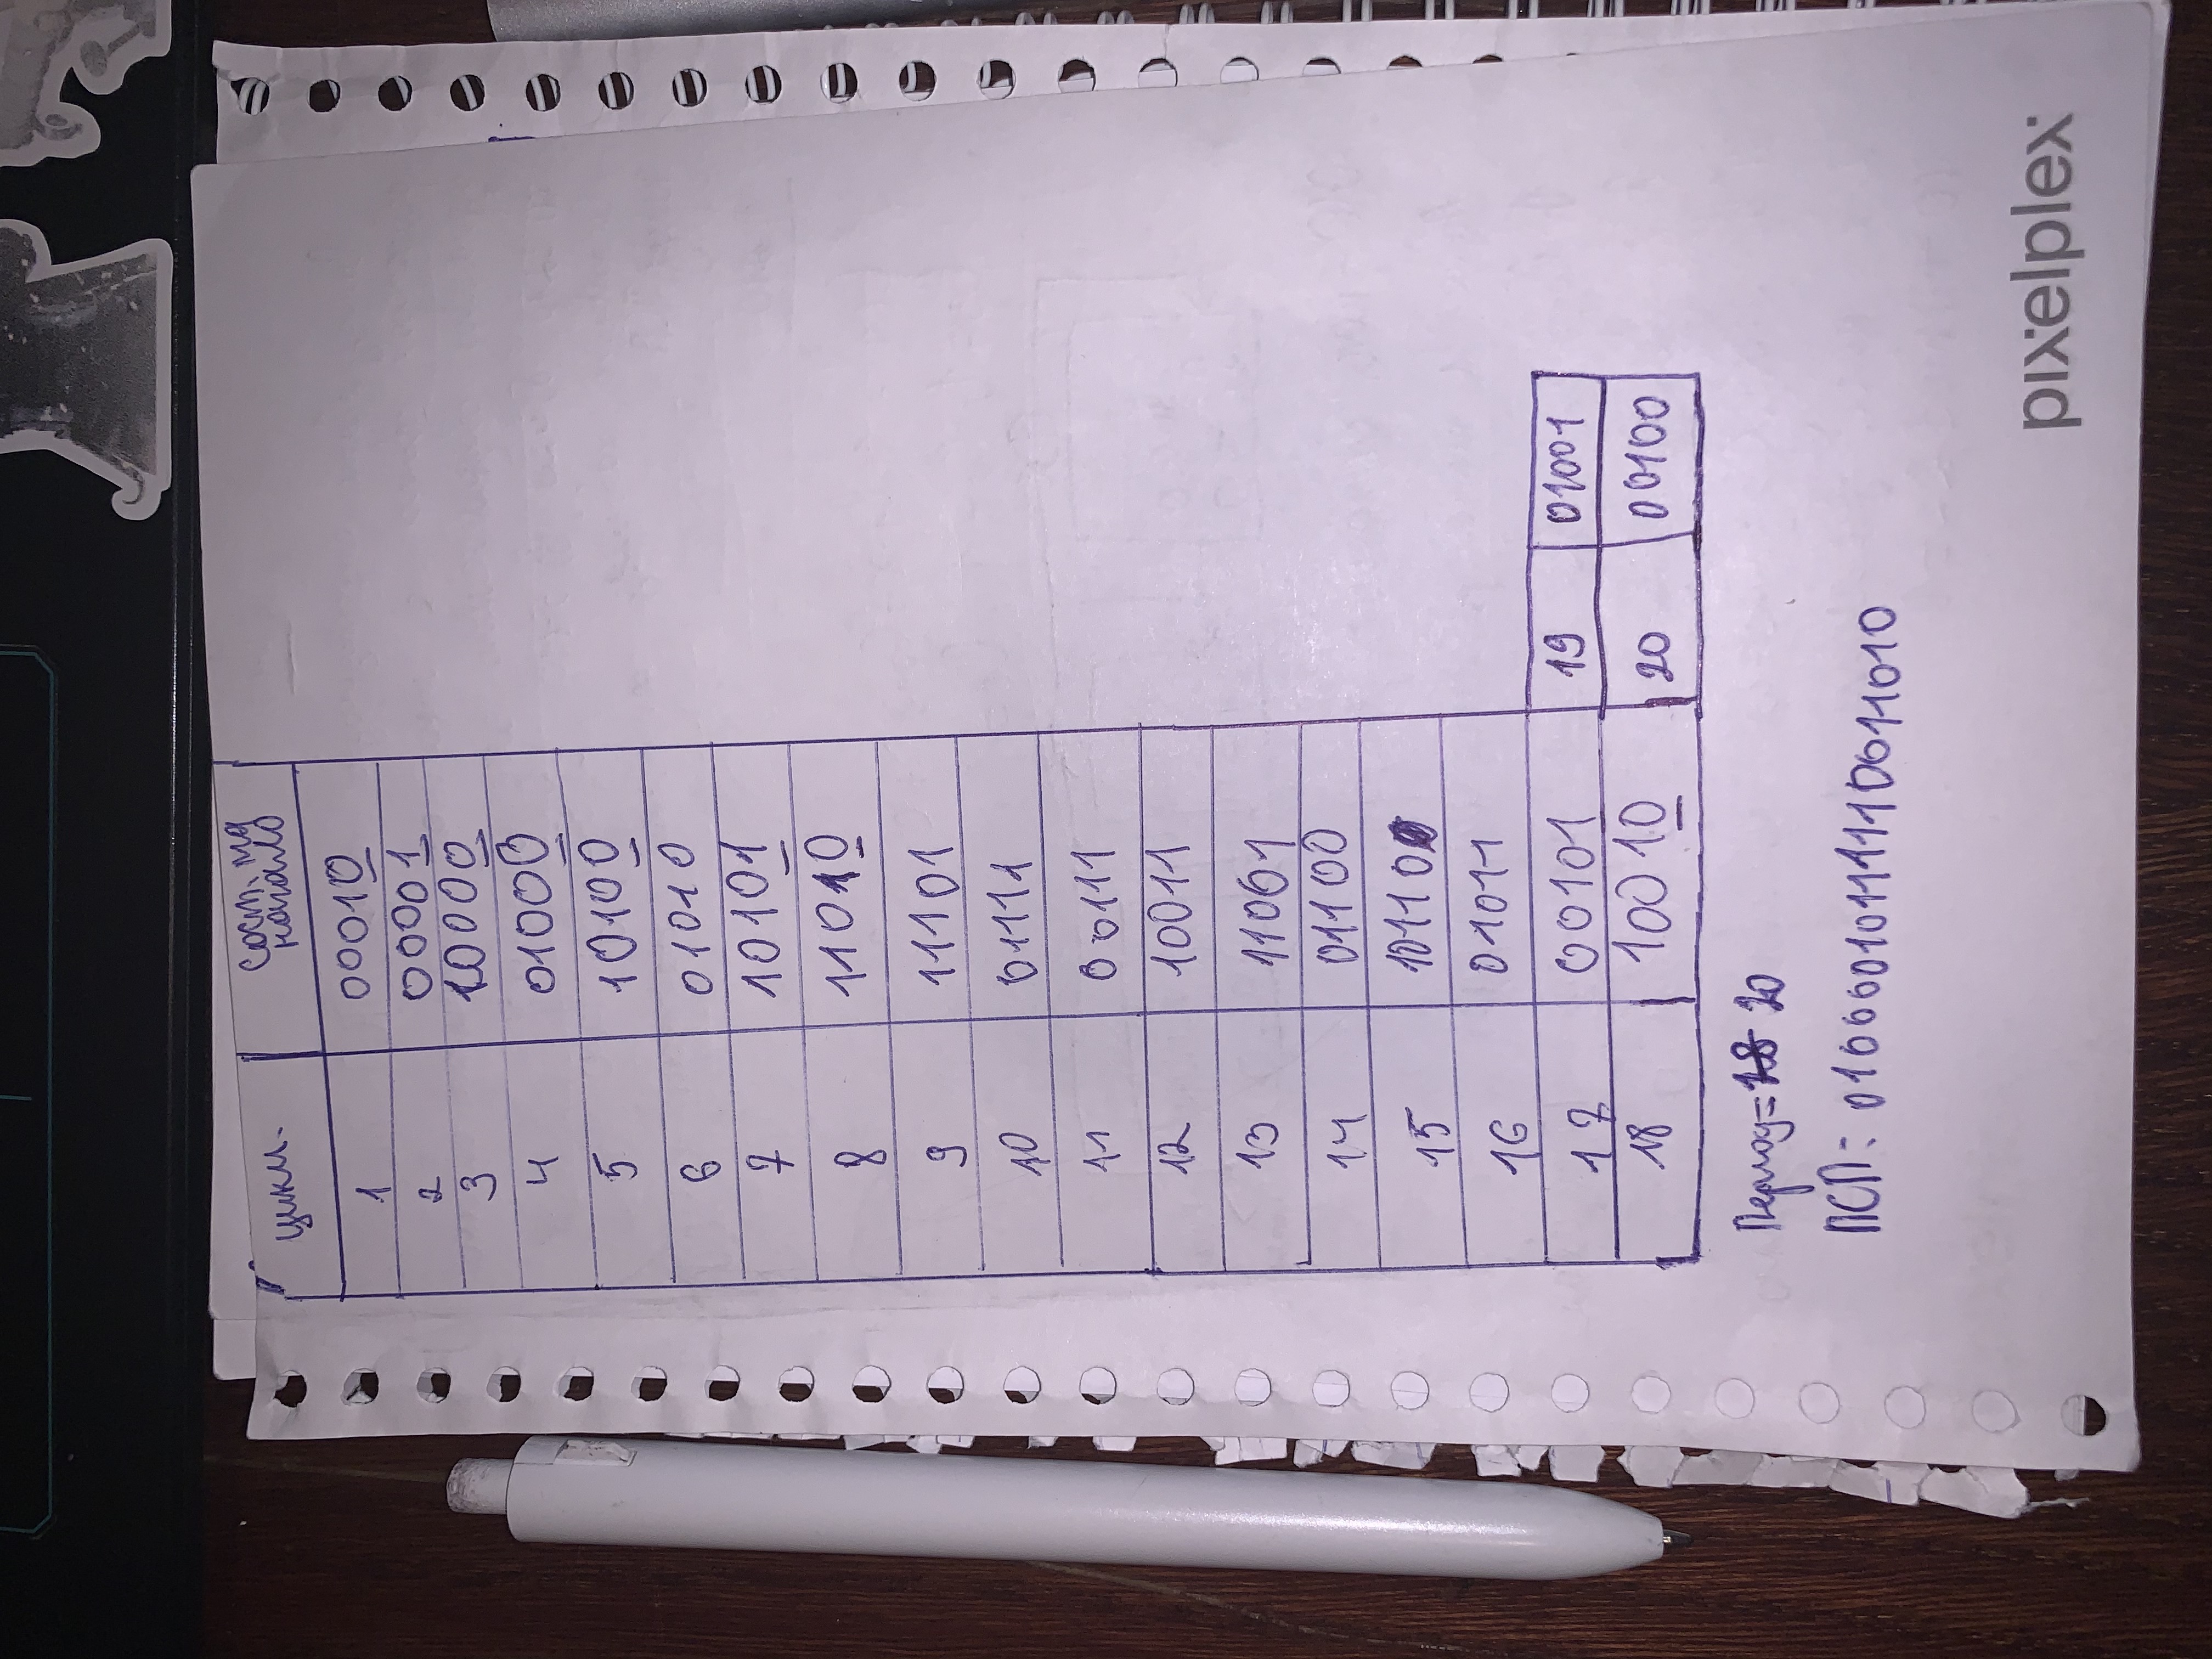 цикл. Сост. на начало
1 00010
2 00001
3 10000
4 01000
5 10100
6 01010
7 10101
8 11010
9 11101
10 01111
11 00111
12 10011
13 11001
14 01100
15 10110
16 01011
17 00101 19 01001
18 10010 20 00100
Период= 18 20
ПСП: 01000010111110011010
pixelplex